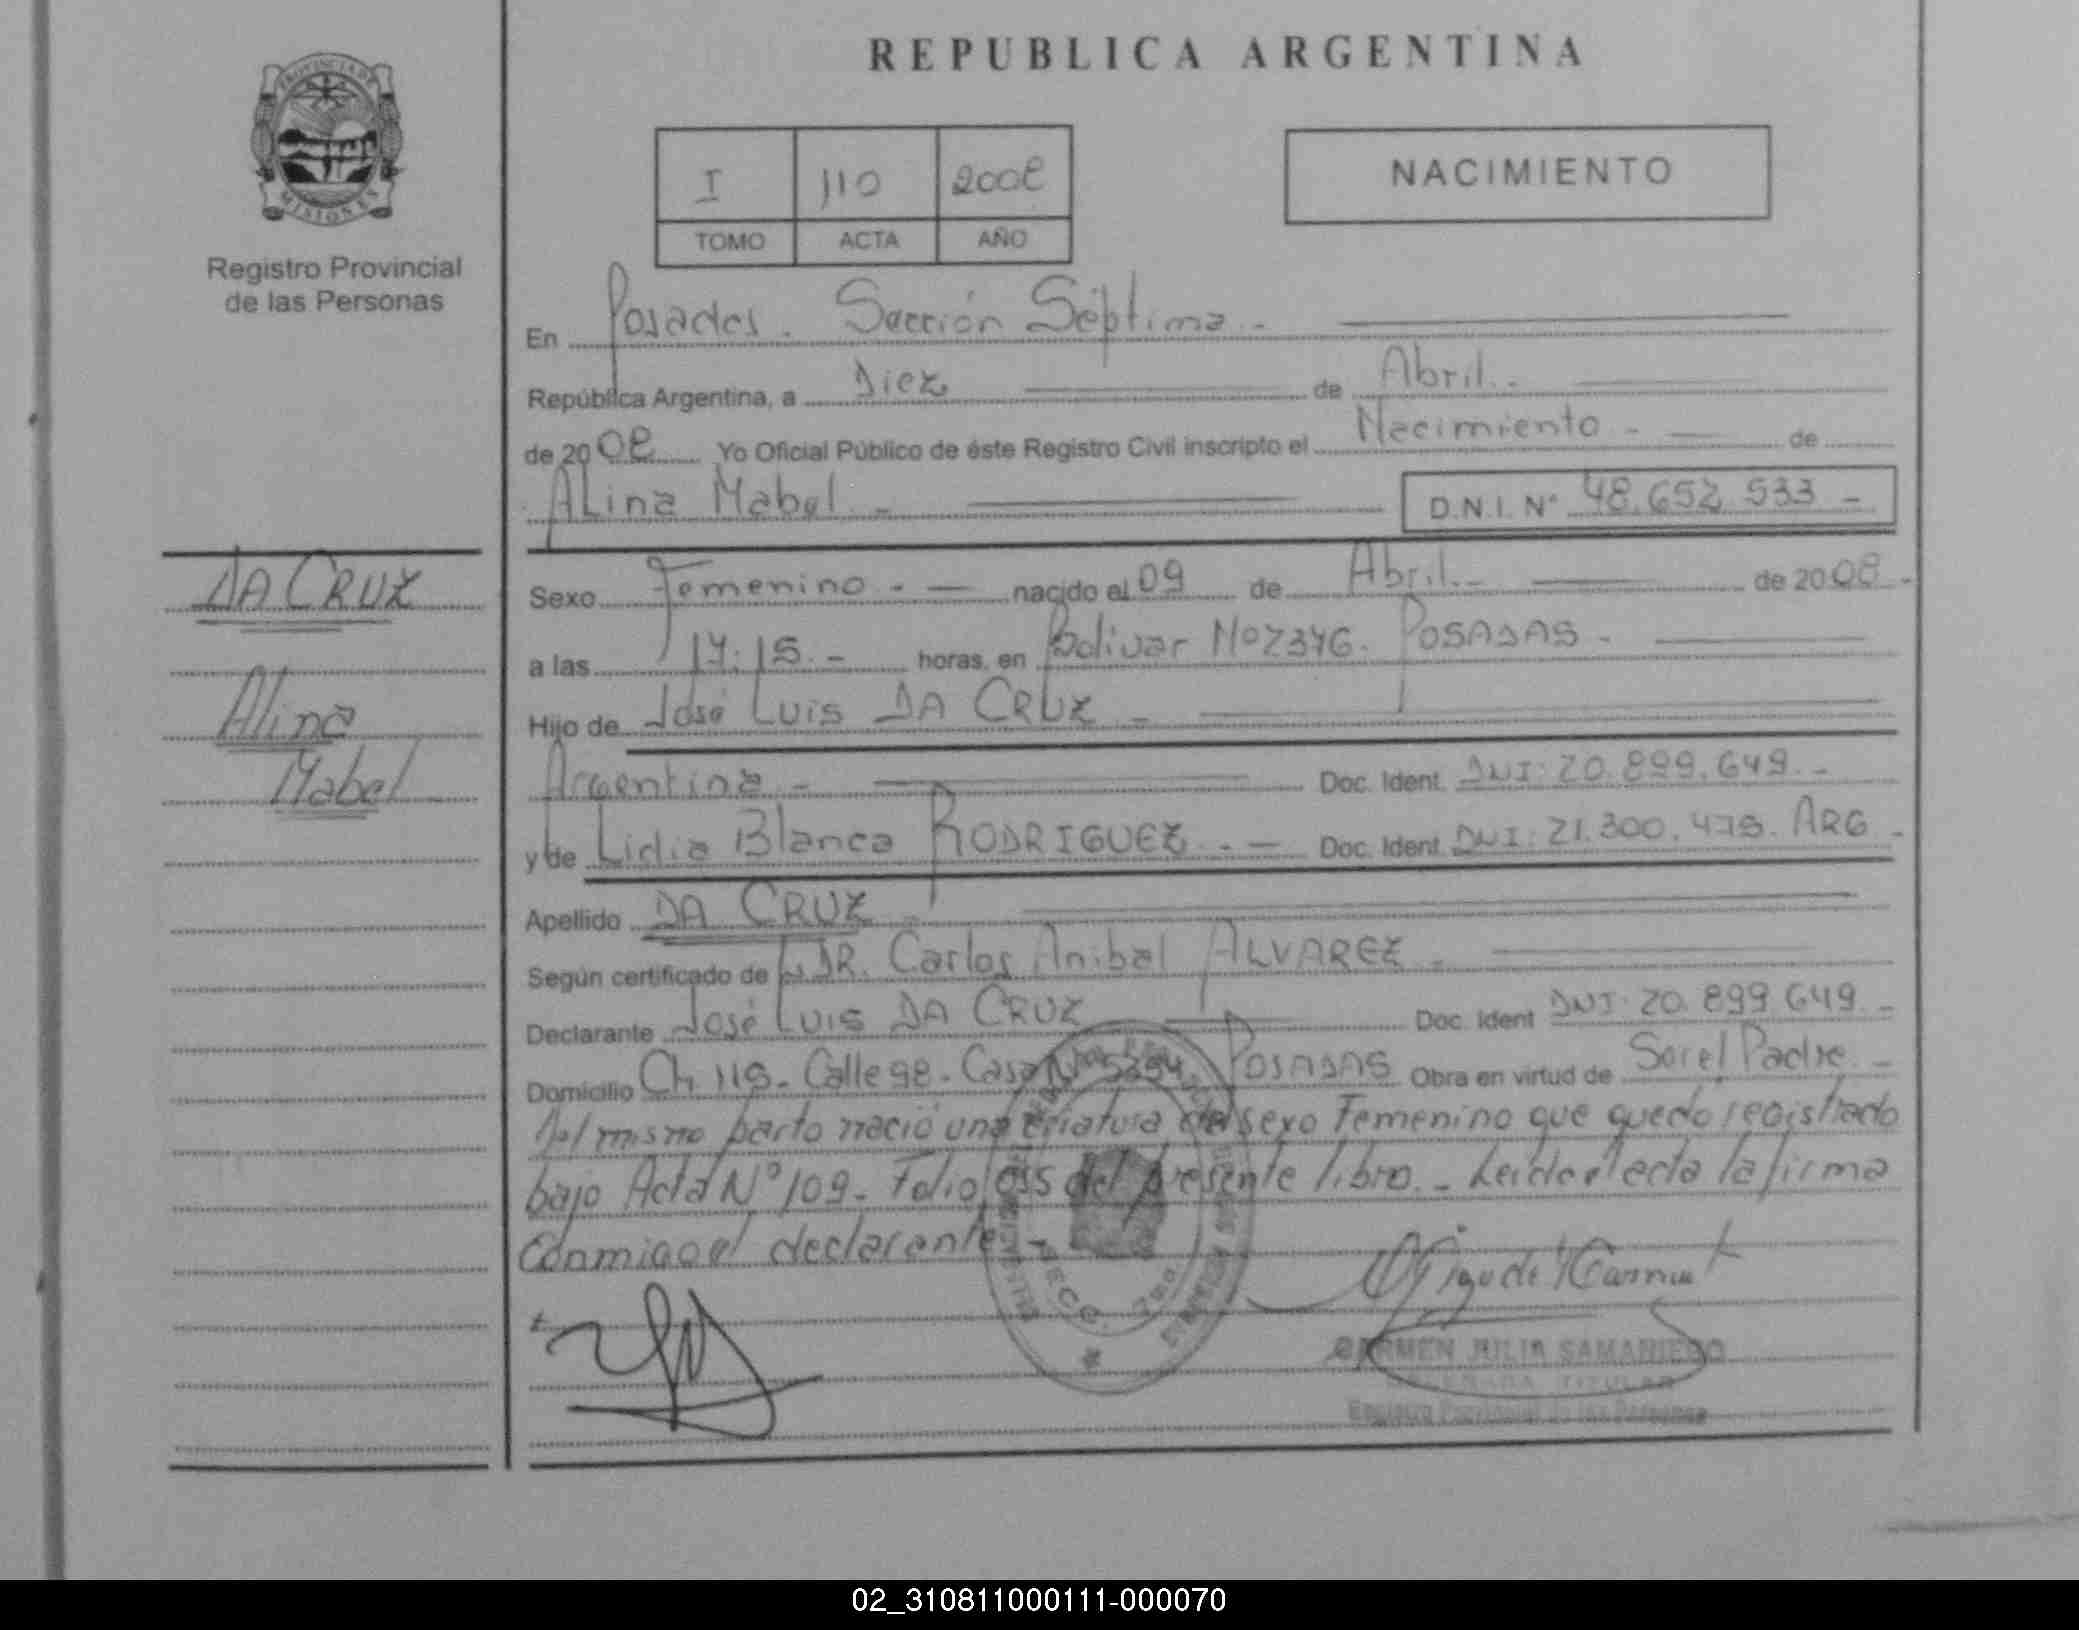 REPUBLICA ARGENTINA
PROVINCIA DE
MISIONES
Registro Provincial
de las Personas
I 110 2008
TOMO ACTA AÑO
NACIMIENTO
En Posadas. Sección Séptima.-
República Argentina, a Diez de Abril.-
de 2008 Yo Oficial Público de éste Registro Civil inscripto el Nacimiento.- de
Alina Mabel.- D.N.I. N° 48.652.533-
DA CRUZ
Alina
Mabel
Sexo Femenino.- nacido el 09 de Abril.- de 2008.-
a las 14:15.- horas, en Bolivar Nº 2376. POSADAS.-
Hijo de José Luis DA CRUZ-
Argentina- Doc. Ident. DNI: 20.899.649.-
y de Lidia Blanca RODRIGUEZ.- Doc. Ident. DNI: 21.300.475. ARG-
Apellido DA CRUZ-
Según certificado de DR. Carlos Anibal ALVAREZ-
Declarante José Luis DA CRUZ Doc. Ident DNI: 20.899.649.-
Domicilio Ch. 115. Calle 98. Casa Nº 5354. POSADAS Obra en virtud de Ser el Padre.-
Del mismo parto nació una criatura del sexo Femenino que quedó registrado
bajo Acta Nº 109- Folio 055 del presente libro.- Leida el acta la firma
Conmigo el declarante-
CARMEN JULIA SAMANIEGO
TITULAR
Registro Provincial de las Personas
02_310811000111-000070